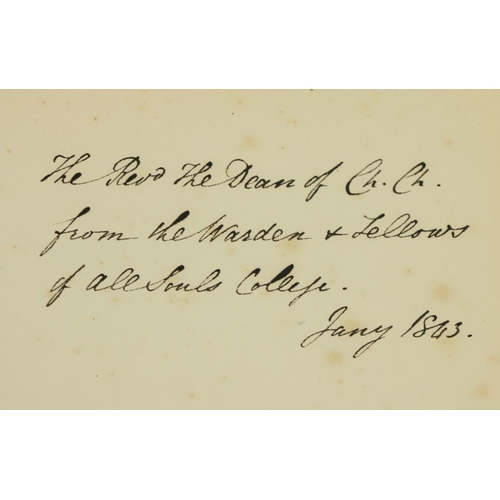 The Revd The Dean of Ch. Ch.
from the Warden & Fellows
of All Souls College.
Jany 1843.